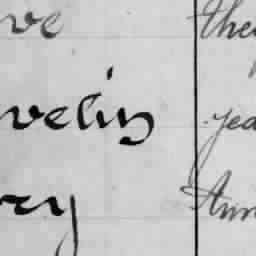 ve
the
velin
yea
ry
Ann